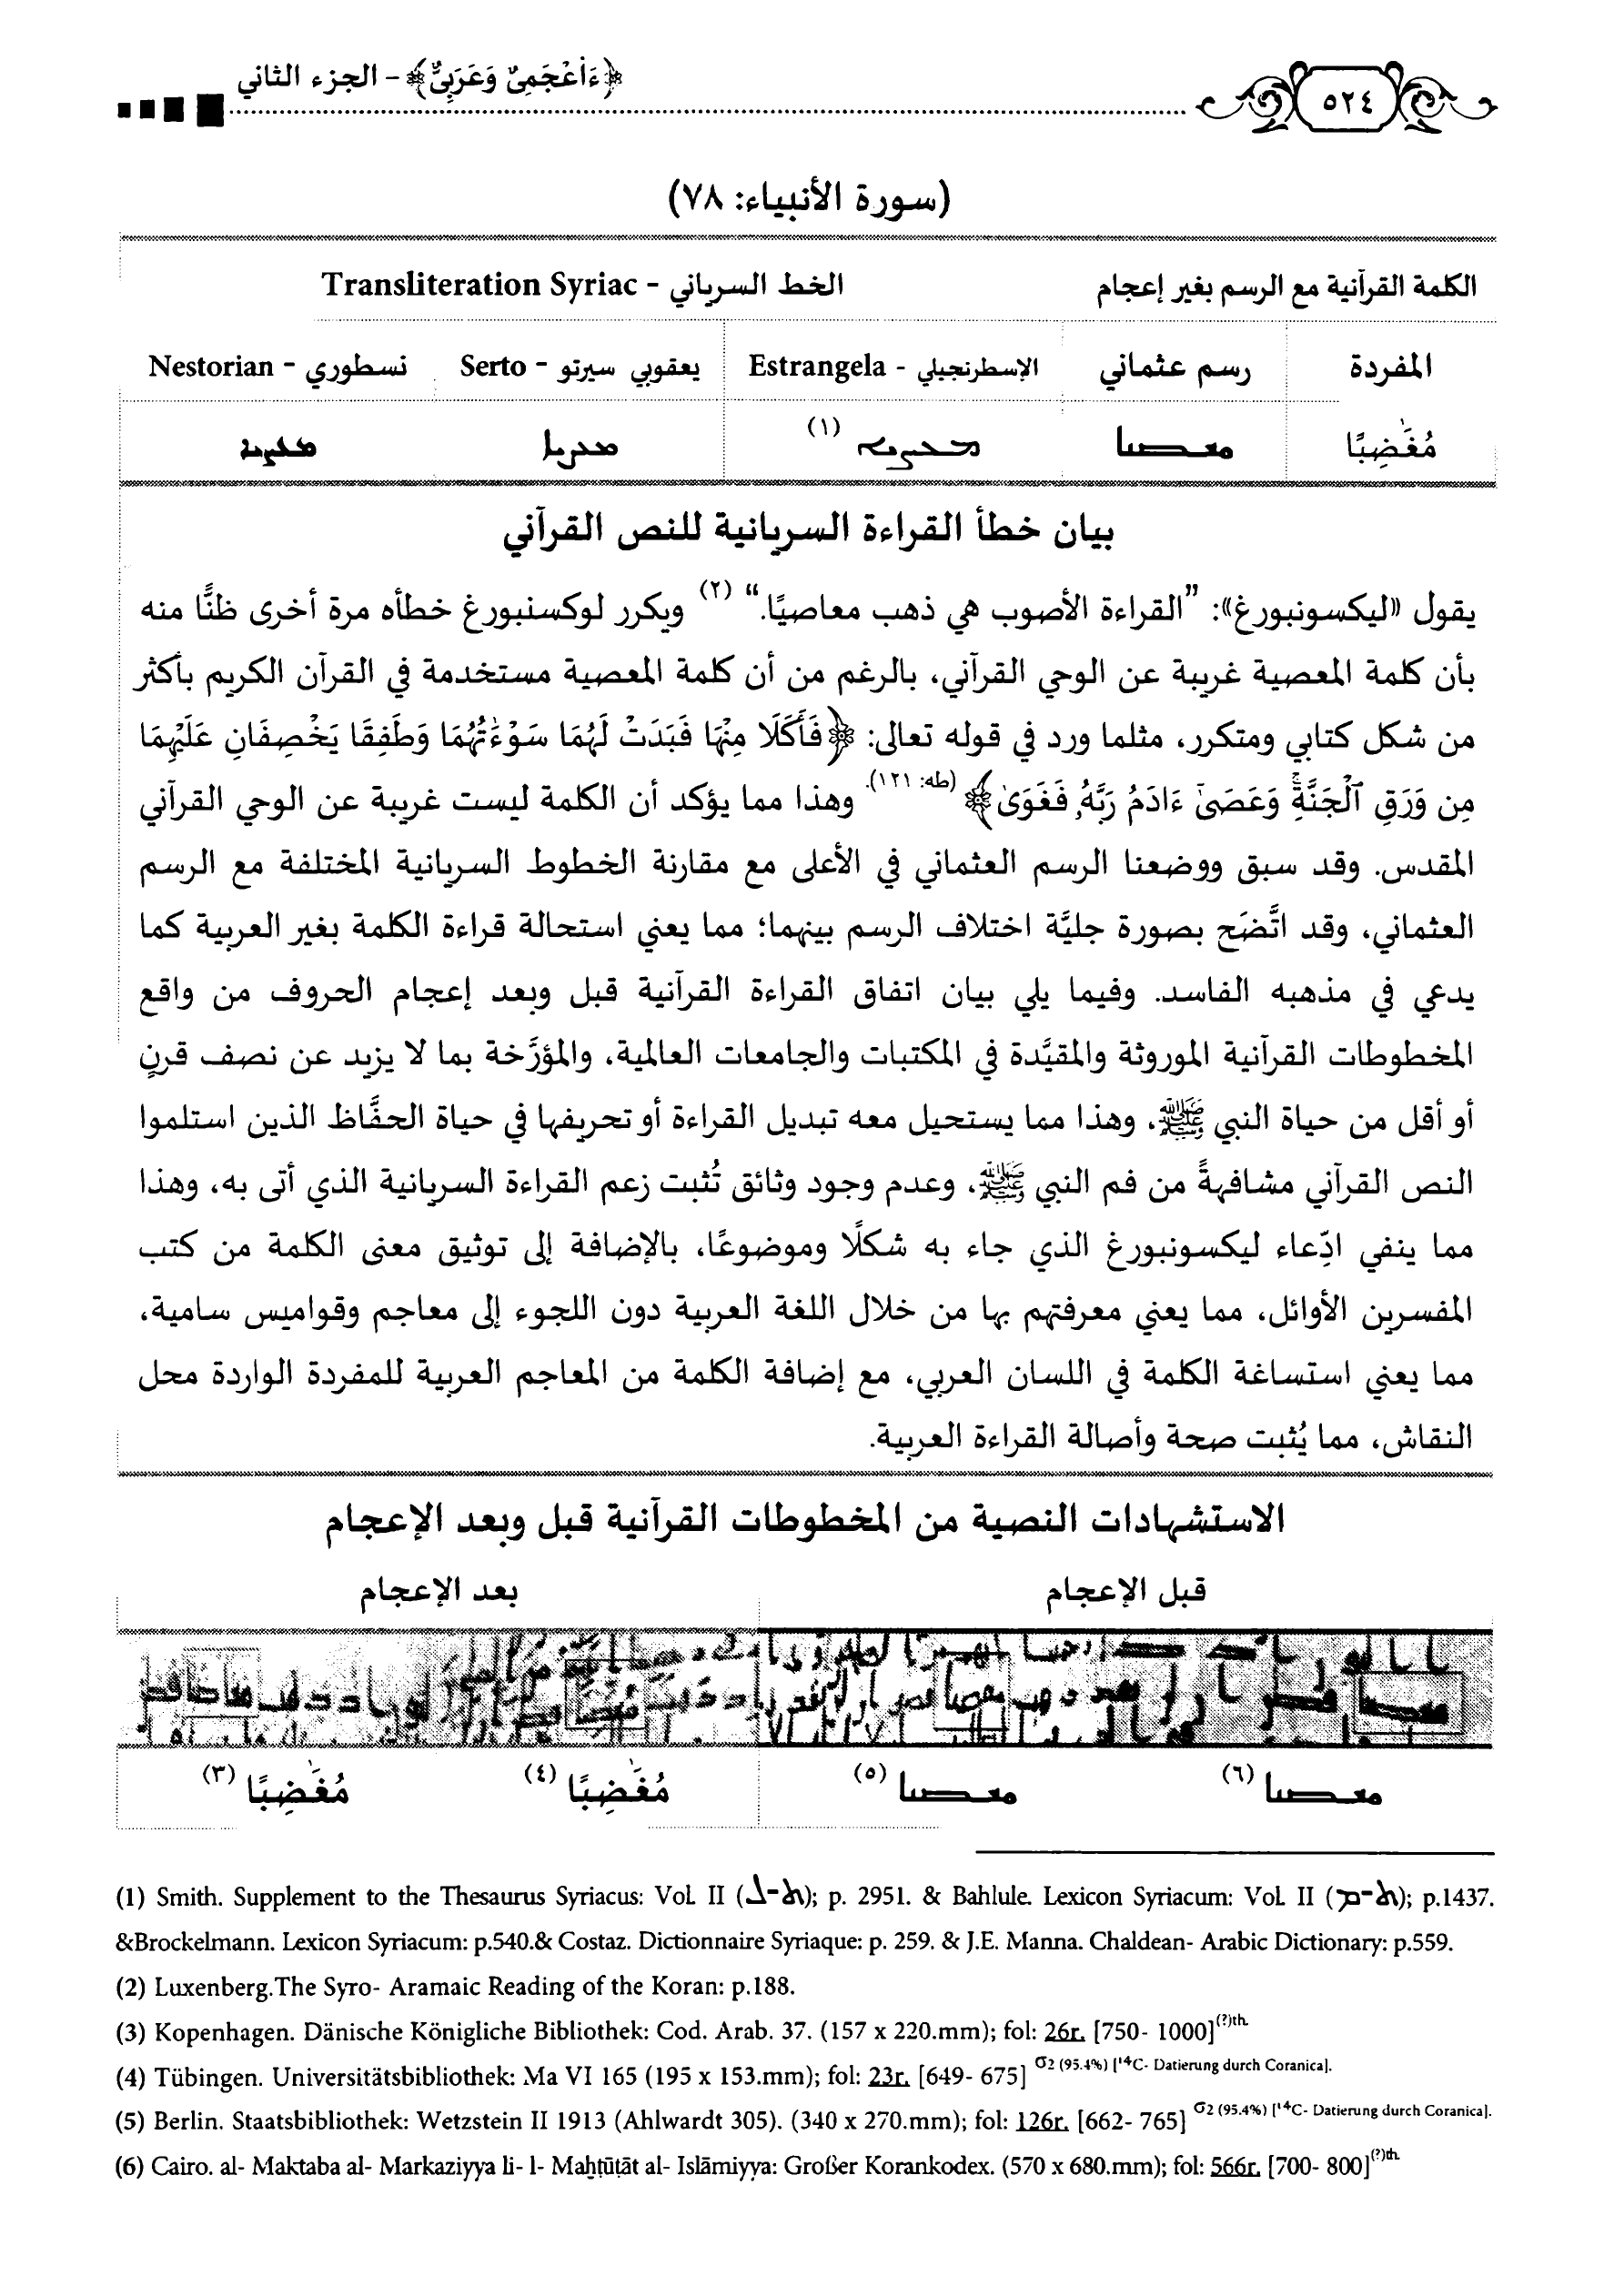 ﴿ءَا۬عْجَمِىٌّ وَعَرَبِىٌّ﴾ – الجزء الثاني
٥٢٤
(سورة الأنبياء: ٧٨)
الكلمة القرآنية مع الرسم بغير إعجام
الخط السرياني - Transliteration Syriac
المفردة
رسم عثماني
الإسطرنجيلي - Estrangela
يعقوبي سيرتو - Serto
نسطوري - Nestorian
مُغَٰضِبًا
(١)
بيان خطأ القراءة السريانية للنص القرآني
يقول «ليكسونبورغ»: ”القراءة الأصوب هي ذهب معاصيًا.“ (٢) ويكرر لوكسنبورغ خطأه مرة أخرى ظنًّا منه
بأن كلمة المعصية غريبة عن الوحي القرآني، بالرغم من أن كلمة المعصية مستخدمة في القرآن الكريم بأكثر
من شكل كتابي ومتكرر، مثلما ورد في قوله تعالى: ﴿فَأَكَلَا مِنْهَا فَبَدَتْ لَهُمَا سَوْءَٰتُهُمَا وَطَفِقَا يَخْصِفَانِ عَلَيْهِمَا
مِن وَرَقِ ٱلْجَنَّةِ ۚ وَعَصَىٰٓ ءَادَمُ رَبَّهُۥ فَغَوَىٰ﴾ (طه: ١٢١). وهذا مما يؤكد أن الكلمة ليست غريبة عن الوحي القرآني
المقدس. وقد سبق ووضعنا الرسم العثماني في الأعلى مع مقارنة الخطوط السريانية المختلفة مع الرسم
العثماني، وقد اتَّضَح بصورة جليَّة اختلاف الرسم بينهما؛ مما يعني استحالة قراءة الكلمة بغير العربية كما
يدعي في مذهبه الفاسد. وفيما يلي بيان اتفاق القراءة القرآنية قبل وبعد إعجام الحروف من واقع
المخطوطات القرآنية الموروثة والمقيَّدة في المكتبات والجامعات العالمية، والمؤرَّخة بما لا يزيد عن نصف قرنٍ
أو أقل من حياة النبي ﷺ، وهذا مما يستحيل معه تبديل القراءة أو تحريفها في حياة الحفَّاظ الذين استلموا
النص القرآني مشافهةً من فم النبي ﷺ، وعدم وجود وثائق تُثبت زعم القراءة السريانية الذي أتى به، وهذا
مما ينفي ادِّعاء ليكسونبورغ الذي جاء به شكلًا وموضوعًا، بالإضافة إلى توثيق معنى الكلمة من كتب
المفسرين الأوائل، مما يعني معرفتهم بها من خلال اللغة العربية دون اللجوء إلى معاجم وقواميس سامية،
مما يعني استساغة الكلمة في اللسان العربي، مع إضافة الكلمة من المعاجم العربية للمفردة الواردة محل
النقاش، مما يُثبت صحة وأصالة القراءة العربية.
الاستشهادات النصية من المخطوطات القرآنية قبل وبعد الإعجام
قبل الإعجام
بعد الإعجام
(٦)
(٥)
مُغَٰضِبًا (٤)
مُغَٰضِبًا (٣)
(1) Smith. Supplement to the Thesaurus Syriacus: Vol. II (ܠ-ܬ); p. 2951. & Bahlule. Lexicon Syriacum: Vol. II (ܡ-ܬ); p.1437.
&Brockelmann. Lexicon Syriacum: p.540.& Costaz. Dictionnaire Syriaque: p. 259. & J.E. Manna. Chaldean- Arabic Dictionary: p.559.
(2) Luxenberg.The Syro- Aramaic Reading of the Koran: p.188.
(3) Kopenhagen. Dänische Königliche Bibliothek: Cod. Arab. 37. (157 x 220.mm); fol: 26r. [750- 1000](?)th.
(4) Tübingen. Universitätsbibliothek: Ma VI 165 (195 x 153.mm); fol: 23r. [649- 675] σ2 (95.4%) [¹⁴C- Datierung durch Coranica].
(5) Berlin. Staatsbibliothek: Wetzstein II 1913 (Ahlwardt 305). (340 x 270.mm); fol: 126r. [662- 765] σ2 (95.4%) [¹⁴C- Datierung durch Coranica].
(6) Cairo. al- Maktaba al- Markaziyya li- l- Maḫṭūṭāt al- Islāmiyya: Großer Korankodex. (570 x 680.mm); fol: 566r. [700- 800](?)th.